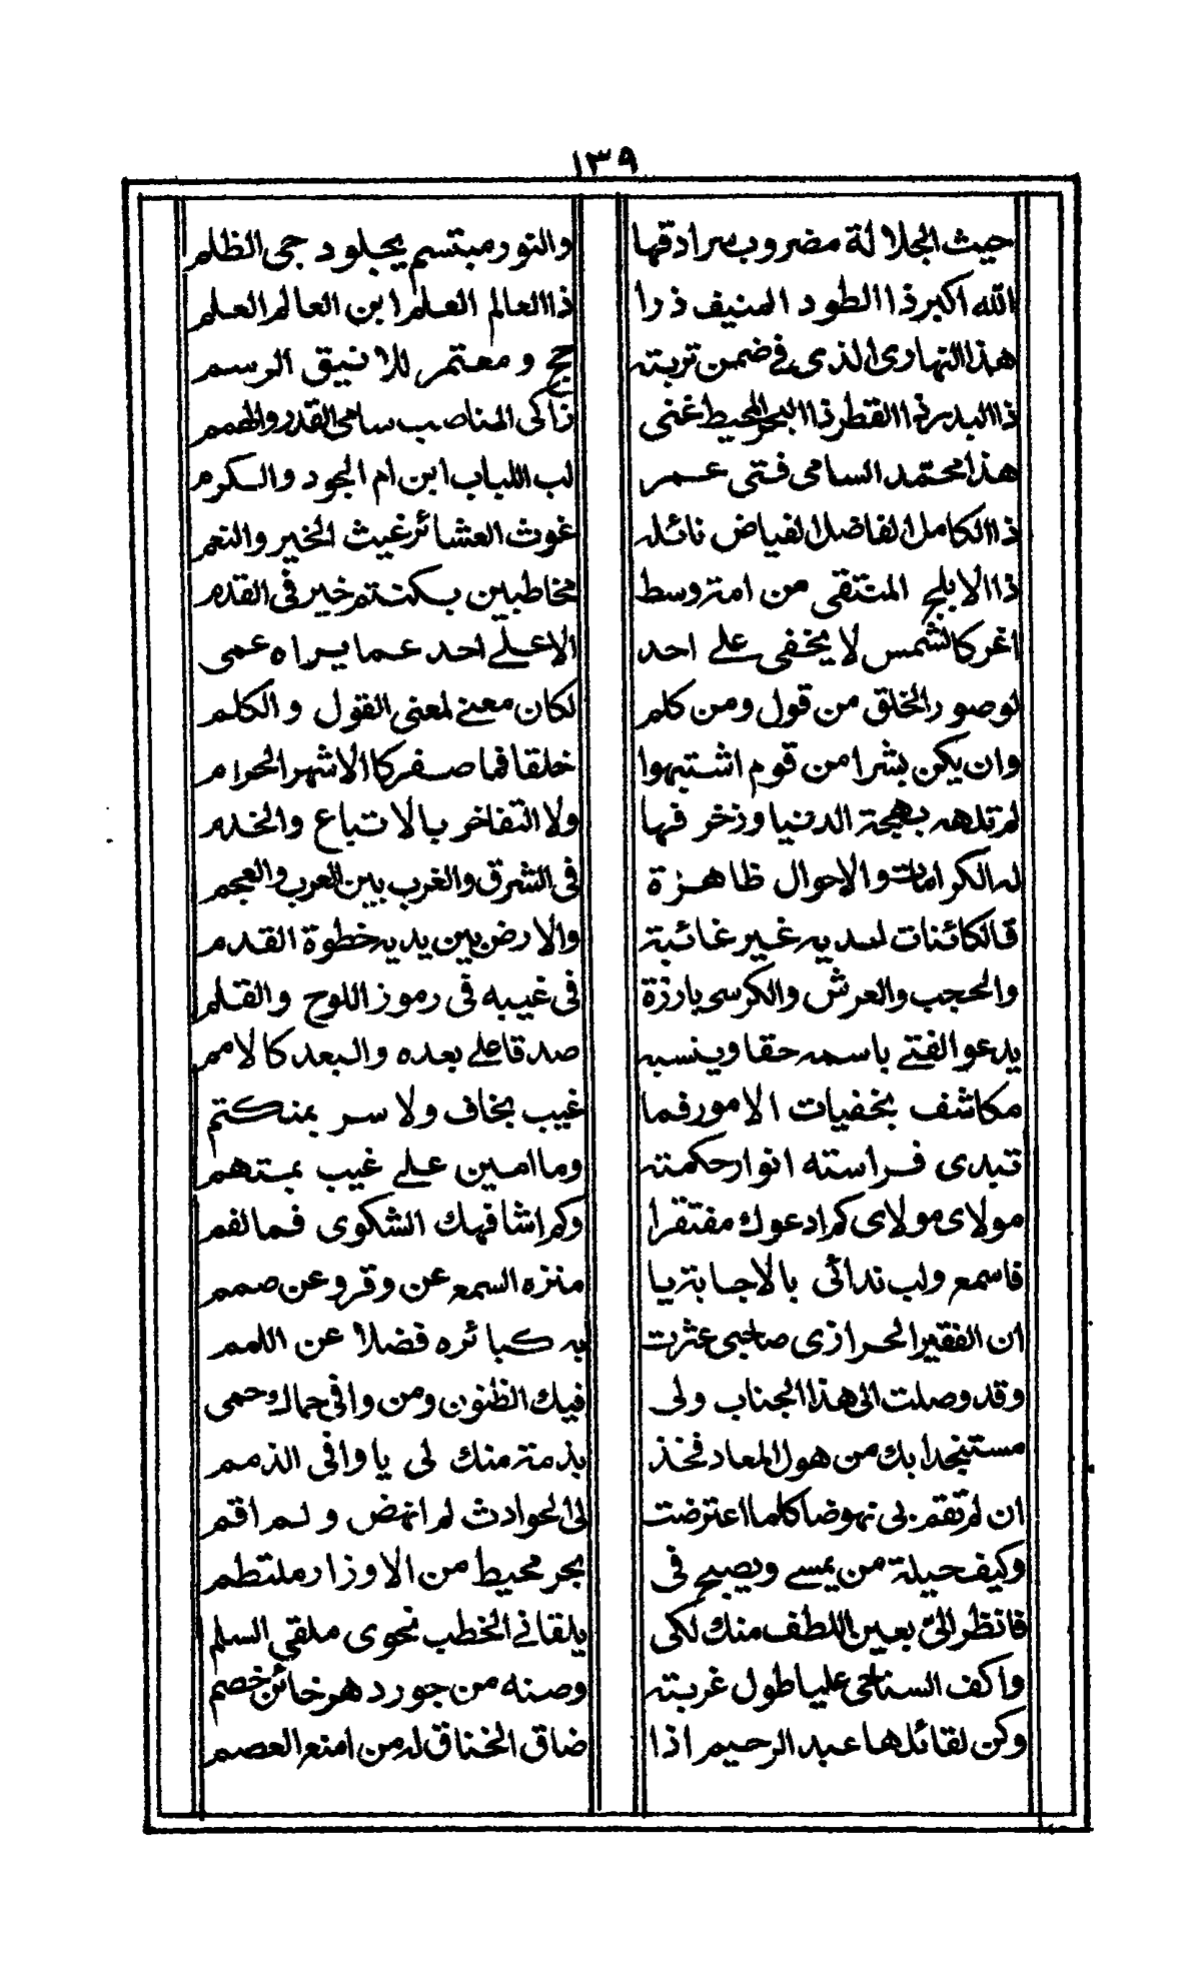 ١٣٩
حيث الجلالة مضروب سرادقها والنور مبتسم يجلو دجى الظلم
الله اكبر ذا الطود المنيف ذرا ذا العالم العلم ابن العالم العلم
هذا النهارى الذى في ضمن تربته حج ومعتمر للانيق الرسم
ذا البدر ذا القطر ذا البحر المحيط غنى زاكى المناصب سامى القدر والهمم
هذا محمد السامى فتى عمر لب اللباب ابن ام الجود والكرم
ذا الكامل الفاضل الفياض نائله غوث العشائر غيث الخير والنعم
ذا الابلج المتتقى من امة وسط مخاطبين بكنتم خير فى القدم
اغر كالشمس لا يخفى على احد الا على احد عما يراه عمى
لو صور الخلق من قول ومن كلم لكان معنى لمعنى القول والكلم
وان يكن بشرا من قوم اشتبهوا خلقا فما صفر كالاشهر الحرام
لم تلهه بهجة الدنيا وزخرفها ولا التفاخر بالاتباع والخدم
له الكرامات والاحوال ظاهرة فى الشرق والغرب بين العرب والعجم
قالكائنات لديه غير غائبة والارض بين يديه خطوة القدم
والحجب والعرش والكرسى بارزة فى غيبه فى رموز اللوح والقلم
يدعو الفتى باسمه حقا وينسبه صدقا على بعده والبعد كالامم
مكاشف بخفيات الامور فما غيب بخاف ولا سر بمنكتم
تبدى فراسته انوار حكمته وما امين على غيب بمتهم
مولاى مولاى كم ادعوك مفتقرا وكم اشافهك الشكوى فما لفم
فاسمع ولب ندائى بالاجابة يا منزه السمع عن وقر وعن صمم
ان الفقير الحرازى صاحبى عثرت به كبائره فضلا عن اللمم
وقد وصلت الى هذا الجناب ولى فيك الظنون ومن وافى حماك حمى
مستنجدا بك من هول المعاد فخذ بذمة منك لى يا وافى الذمم
ان لم تقم بى نهوضا كلما اعترضت لى الحوادث لم انهض ولم اقم
وكيف حيلة من يمسى ويصبح فى بحر محيط من الاوزار ملتطم
فانظر الىّ بعين اللطف منك لكى يلقانى الخطب نحوى ملقى السلم
واكف السناحى عليا طول غربته وصنه من جور دهر خائن خصم
وكن لقائلها عبد الرحيم اذا ضاق الخناق له من امنع العصم